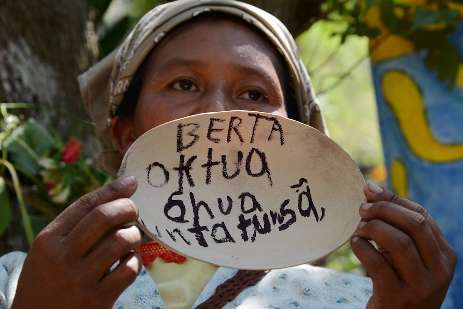 BERTA
oktua
áhua
intatunsã,